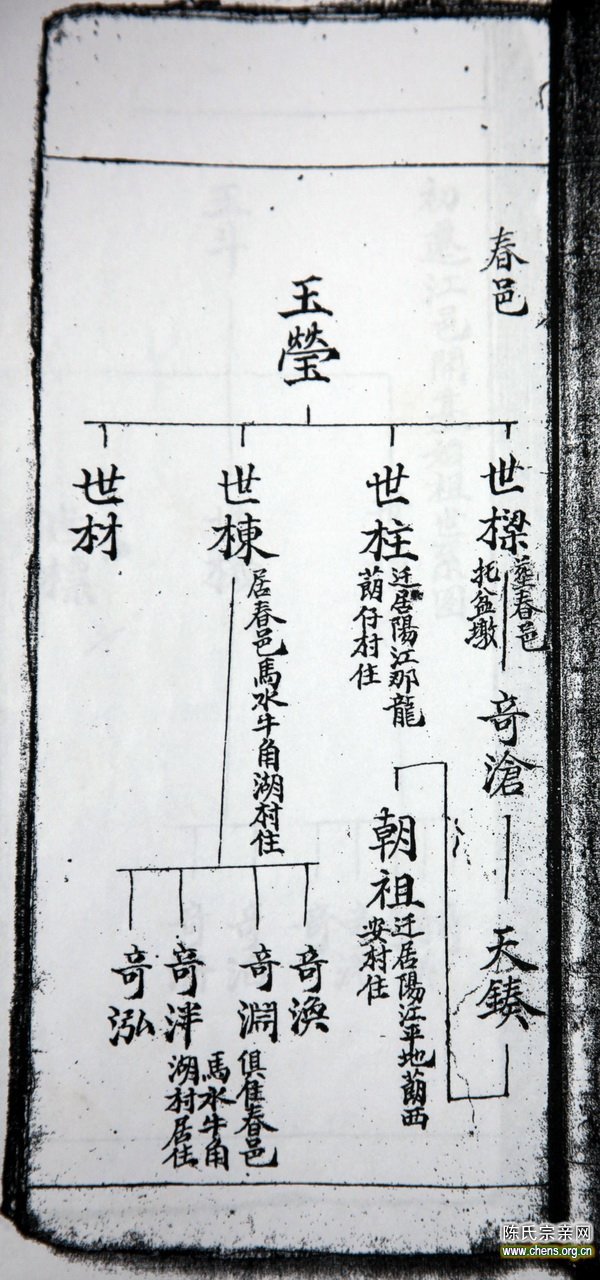 春邑
玉瑩
世樑
葬春邑
托盆墩
世柱
迁居陽江那龍
蓢仔村住
世棟
居春邑馬水牛角湖村住
世材
奇滄
天鍨
朝祖
迁居陽江平地蓢西
安村住
奇渙
奇淵
奇泮
奇泓
俱住春邑
馬水牛角
湖村居住
陈氏宗亲网
www.chens.org.cn